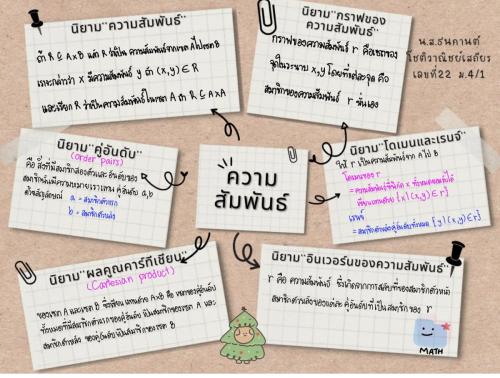 นิยาม"ความสัมพันธ์"
ถ้า R ⊆ A×B แล้ว R ว่าเป็น ความสัมพันธ์จากเซต A ไปเซต B
เราจะกล่าวว่า x มีความสัมพันธ์ y ถ้า (x,y) ∈ R
และเรียก R ว่าเป็นความสัมพันธ์ในเซต A ถ้า R ⊆ A×A
นิยาม"กราฟของ
ความสัมพันธ์"
กราฟของความสัมพันธ์ r คือเซตของ
จุดในระนาบ x,y โดยที่แต่ละจุด คือ
สมาชิกของความสัมพันธ์ r นั่นเอง
น.ส.ธนกานต์
โชติวาณิชย์เสถียร
เลขที่22 ม.4/1
นิยาม"คู่อันดับ"
(order pairs)
คือ สิ่งที่มีสมาชิกสองตัวและ อันดับของ
สมาชิกนั้นมีความหมายเราแทน คู่อันดับ a,b
ด้วยสัญลักษณ์ a = สมาชิกตัวแรก
b = สมาชิกตัวหลัง
ความ
สัมพันธ์
นิยาม"โดเมนและเรนจ์"
ให้ r เป็นความสัมพันธ์จาก A ไป B
โดเมนของ r
{x|(x,y)∈r}
เรนจ์
=สมาชิกตัวหลังคู่อันดับทั้งหมด {y|(x,y)∈r}
นิยาม"ผลคูณคาร์ทีเซียน"
(Cartesian product)
ของเซต A และเซต B ซึ่งเขียน แทนด้วย A×B คือ เซตของคู่อันดับ
ทั้งหมดที่มีสมาชิกตัวแรกของคู่อันดับ เป็นสมาชิกของเซต A และ
สมาชิกตัวหลัง ของคู่อันดับเป็นสมาชิกของเซต B
นิยาม"อินเวอร์นของความสัมพันธ์"
r คือ ความสัมพันธ์ ซึ่งเกิดจากการสลับที่ของสมาชิกตัวหน้า
สมาชิกตัวหลัง ของแต่ละ คู่อันดับที่เป็น สมาชิกของ r
MATH